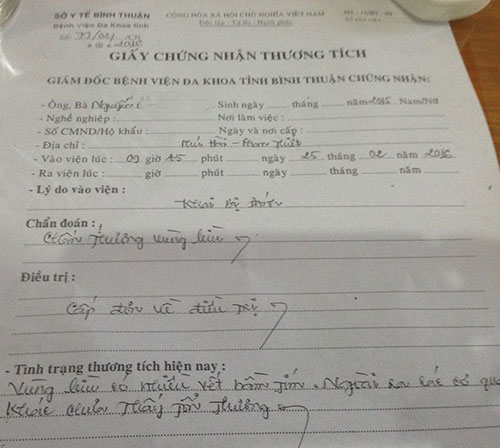 SỞ Y TẾ BÌNH THUẬN
CỘNG HÒA XÃ HỘI CHỦ NGHĨA VIỆT NAM
Bệnh viện Đa Khoa tỉnh
Độc lập - Tự do - Hạnh phúc
GIẤY CHỨNG NHẬN THƯƠNG TÍCH
GIÁM ĐỐC BỆNH VIỆN ĐA KHOA TỈNH BÌNH THUẬN CHỨNG NHẬN:
- Ông, Bà Nguyễn Sinh ngày tháng năm Nam/Nữ
- Nghề nghiệp : Nơi làm việc :
- Số CMND/Hộ khẩu : Ngày và nơi cấp
- Địa chỉ : - Phan Thiết
- Vào viện lúc : 09 giờ 15 phút ngày 25 tháng 02 năm 2016
- Ra viện lúc : giờ phút ngày tháng năm
- Lý do vào viện :
Khai bị đánh
Chẩn đoán :
Chấn thương vùng lưng
Điều trị :
Cấp đơn về điều trị
- Tình trạng thương tích hiện nay :
Vùng có nhiều vết bầm tím. Ngoài ra các cơ
khác chưa thấy tổn thương